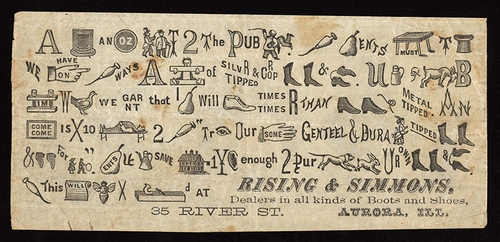 A AN OZ 2 The PUB ENTS MUST T
WE HAVE ON WAYS A of SILVR & COPR TIPPED & S. U B
TIME W WE GARNT that I Will TIMES TIMES R THAN METAL TIPPED. AN
COME COME IS X 10 2 "Tr Our SOME GENTEEL & DURA TIPPED
& For " ENTS LE SAVE 1 X enough 2 PUR UR &
This WILL X d AT RISING & SIMMONS,
Dealers in all kinds of Boots and Shoes,
35 RIVER ST. AURORA, ILL.